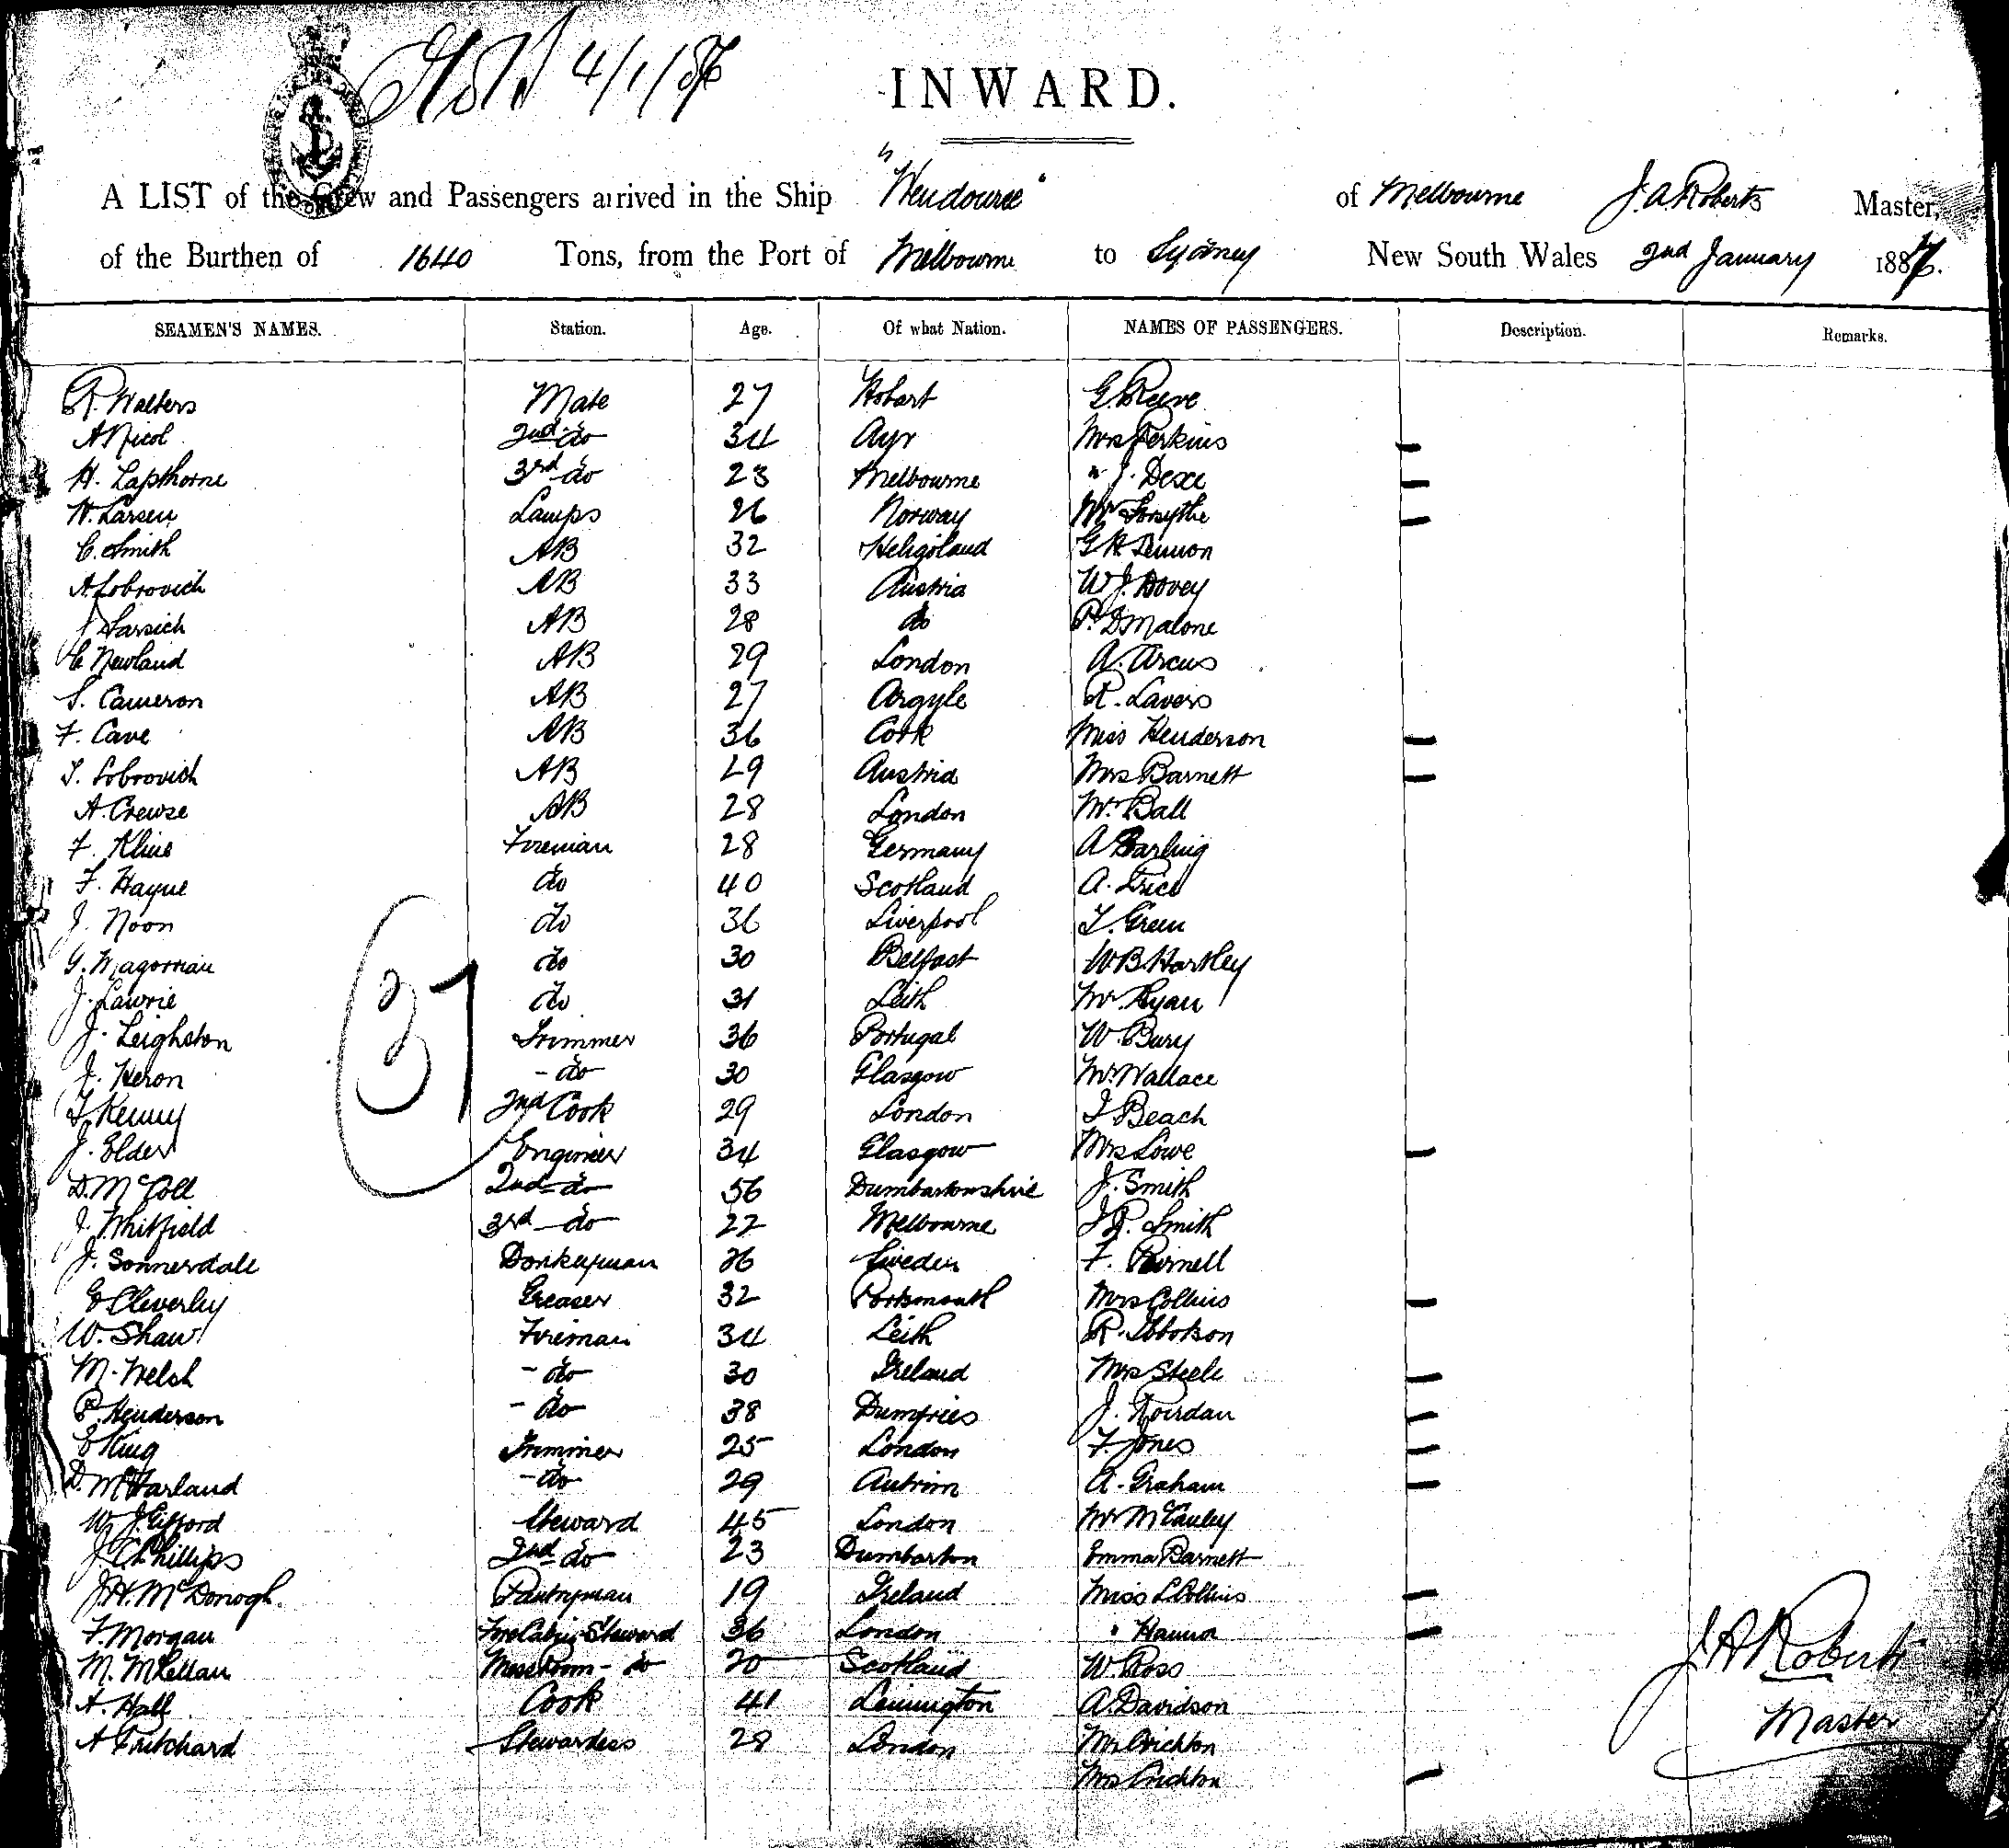 4/1/87
INWARD.
A LIST of the Crew and Passengers arrived in the Ship "Wendouree" of Melbourne J. A. Roberts Master,
of the Burthen of 1640 Tons, from the Port of Melbourne to Sydney New South Wales 2nd January 1887.
SEAMEN'S NAMES. Station. Age. Of what Nation. NAMES OF PASSENGERS. Description. Remarks.
R. Walters Mate 27 Hobart G. Reeve
A Nicol 2nd do 34 Ayr Mrs Perkins
H. Lapthorne 3rd do 23 Melbourne " J.
W. Larsen Lamps 26 Norway Forsythe
C. Smith AB 32 Heligoland G H Lennon
A Lobrovich AB 33 Austria W J. Hovey
Larsich AB 28 do P. D Malone
C Newland AB 29 London A. Arcus
S. Cameron AB 27 Argyle R. Lavers
F. Cave AB 36 Cork Miss Henderson
S. Lobrovich AB 29 Austria Mrs Barnett
A. Crewse AB 28 London Mr Ball
F. Kline Fireman 28 Germany A Barling
F. Hayne do 40 Scotland A. Price
J. Noon do 36 Liverpool T. Green
G. Magornian do 30 Belfast W B Hartley
J. Lawrie do 31 Leith Mr Ryan
J. Leighston Trimmer 36 Portugal W. Bury
J. Heron - do 30 Glasgow Mr Wallace
37
T. Kenny 2nd Cook 29 London J Beach
J. Elder Engineer 34 Glasgow Mrs Lowe
D. McColl 2nd do 56 Dumbartonshire J. Smith
J. Whitfield 3rd do 22 Melbourne J R. Smith
J. Sonnerdale Donkeyman 26 Sweden F. Purnell
G Cleverley Greaser 32 Portsmouth Mrs Collins
W. Shaw Fireman 34 Leith R. Ibbotson
M. Welsh - do 30 Ireland Mrs Steele
P. Henderson - do 38 Dumfries J. Roirdan
E King Trimmer 25 London F. Jones
D. McFarland - do 29 Antrim A. Graham
W. J. Gifford Steward 45 London McCauley
J. C. Phillips 2nd do 23 Dumbarton Emma Barnett
J. H. McDonogh. Pantryman 19 Ireland Miss L Collins
F. Morgan Fore Cabin Steward 36 London " Hannon
M. McLellan Mess Room - do 20 Scotland W Ross
A. Hall Cook 41 Lemington A. Davidson
A Pritchard Stewardess 28 London Mr Crichton
Mrs Crichton
J A Roberts
Master